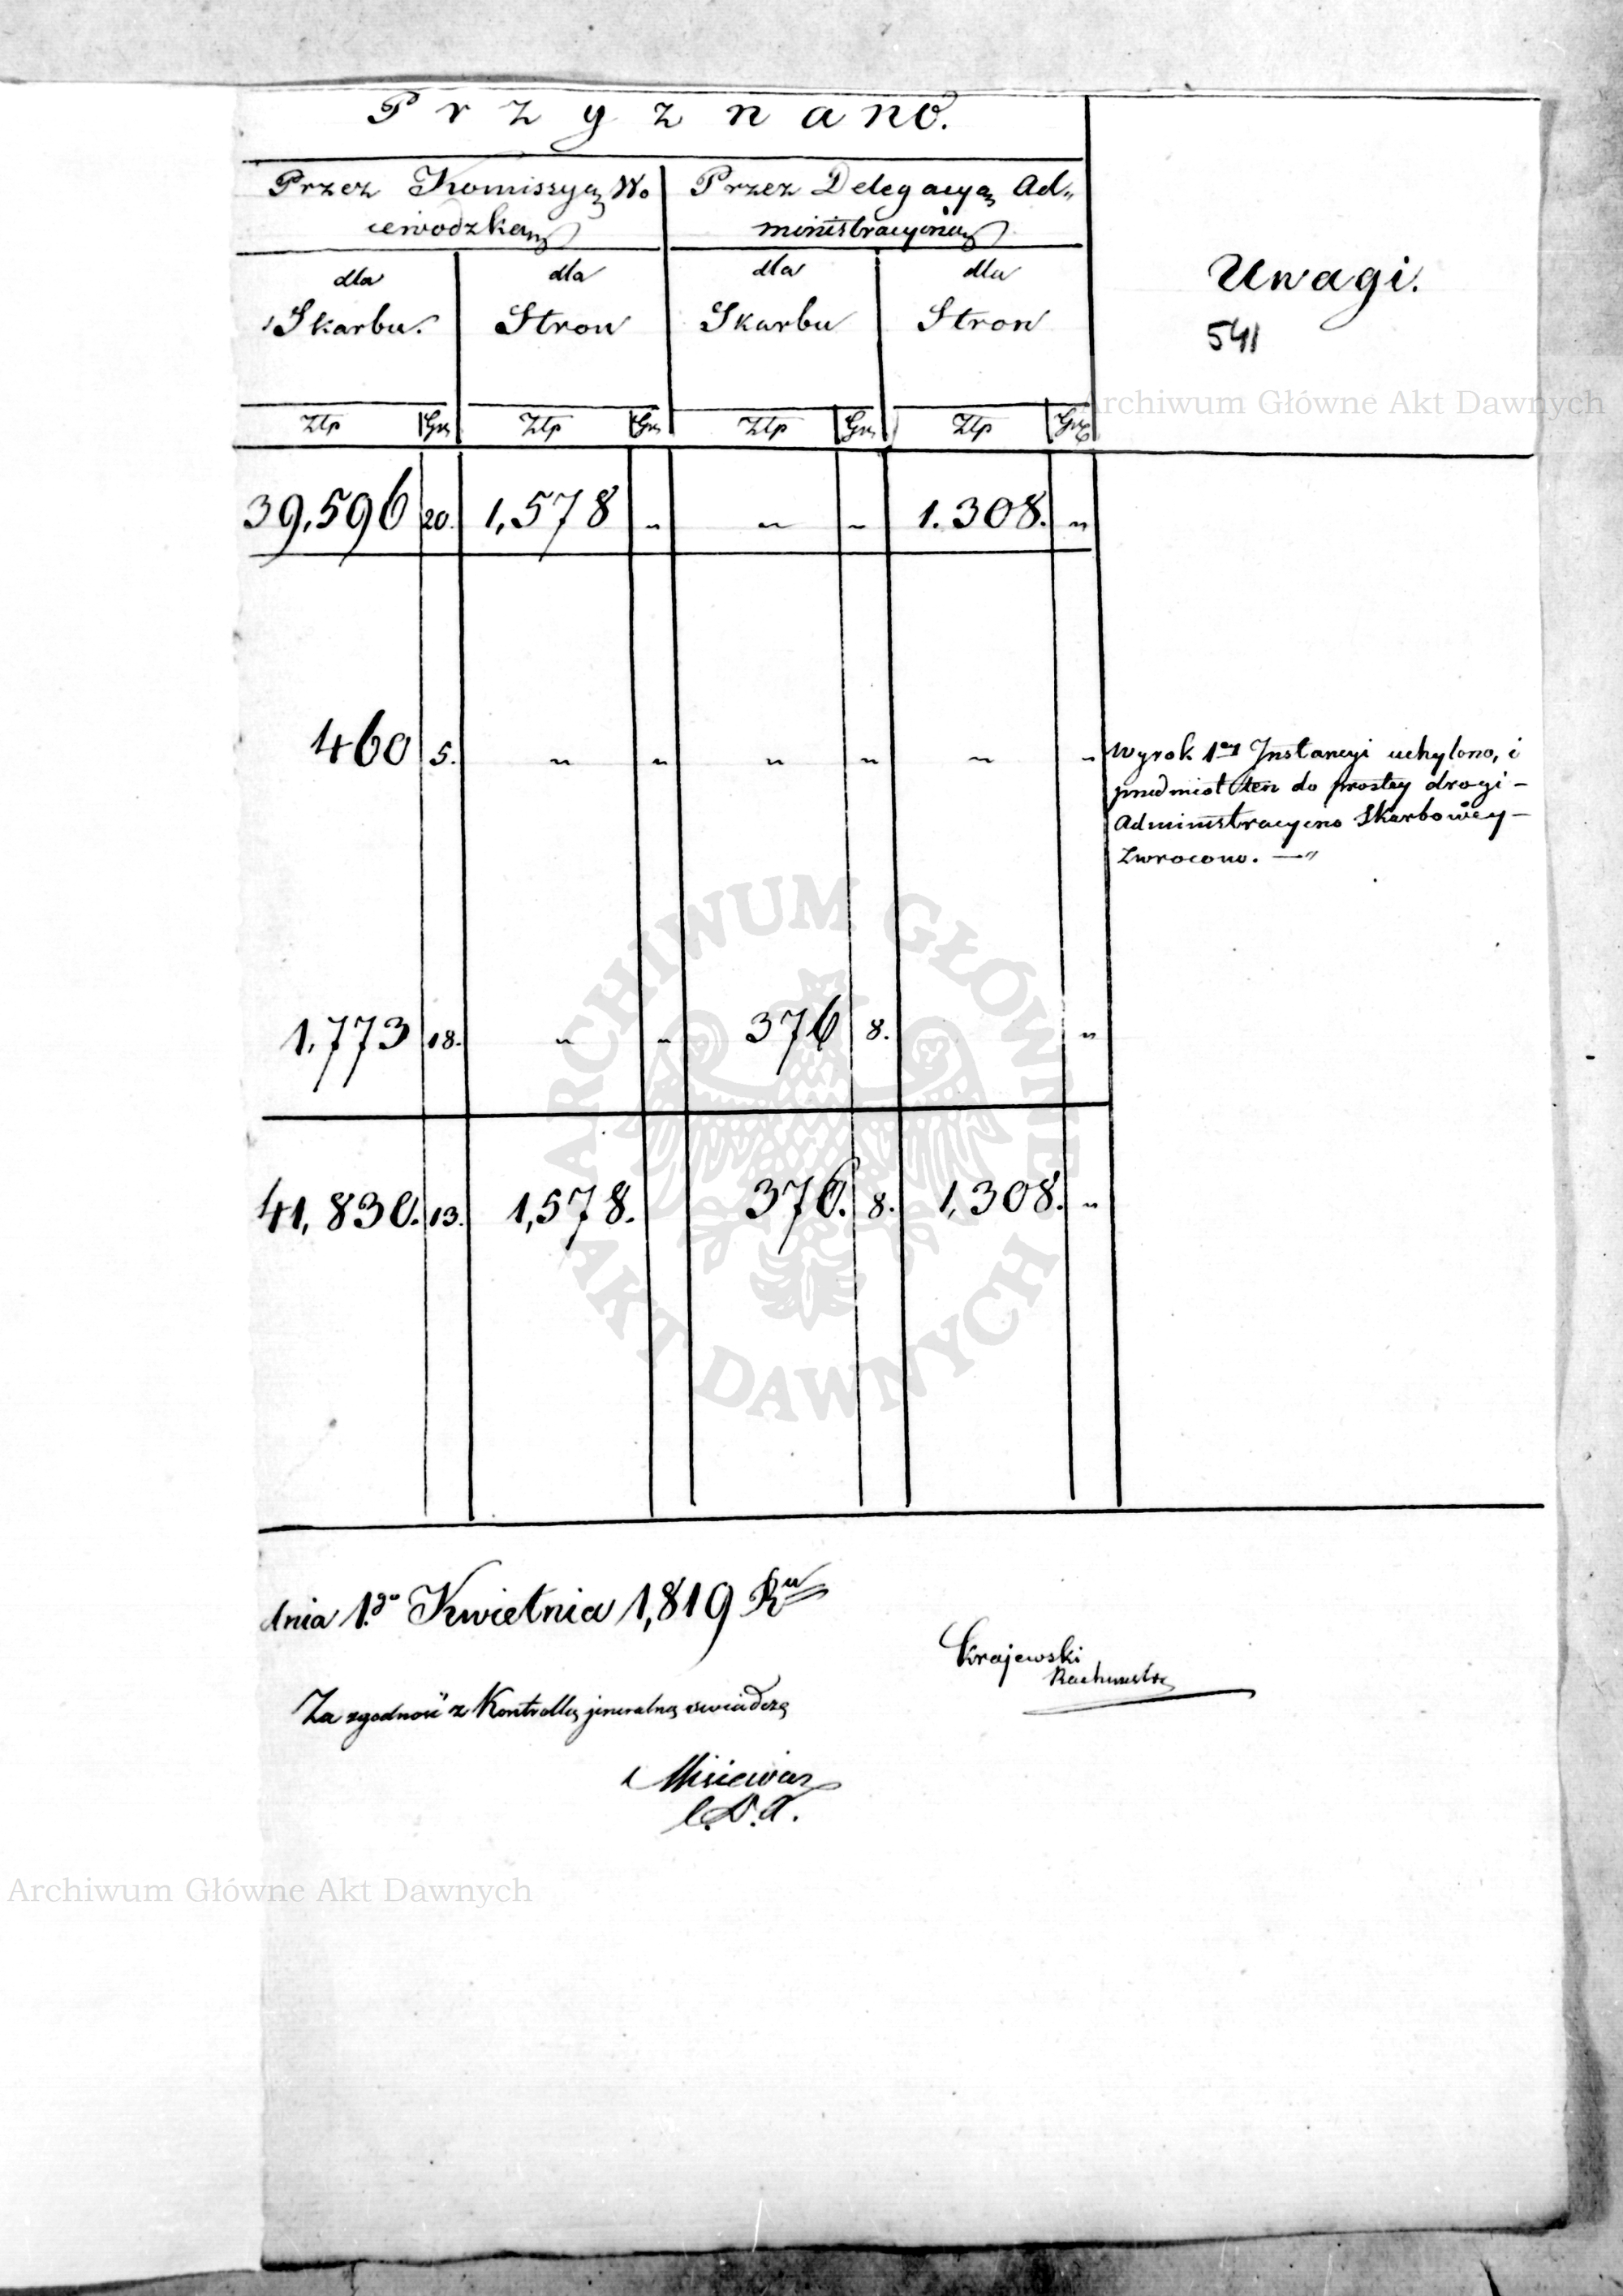 Przyznano.
Przez Komissyą Wo
iewodzką
Przez Delegacyą Ad„
ministracyiną
Uwagi.
541
dla
Skarbu.
dla
Stron
dla
Skarbu
dla
Stron
Złp Gr. Złp Gr. Złp Gr. Złp Gr.
39,596 20. 1,578 „ „ „ 1.308. „
460 5. „ „ „ „ „ „
Wyrok 1ey Instancyi uchylono, i
przedmiot ten do prostey drogi –
Administracyino Skarbowéy –
Zwrocono. —„
1,773 18. „ „ 376 8. „
41,830. 13. 1,578. 376. 8. 1,308. „
dnia 1.go Kwietnia 1,819 Ru
Krajewski
Rachmistrz
Za zgodność z Kontrollą jeneralną swiadczę
Misiewicz
Archiwum Główne Akt Dawnych
ARCHIWUM GŁÓWNE
AKT DAWNYCH
Archiwum Główne Akt Dawnych